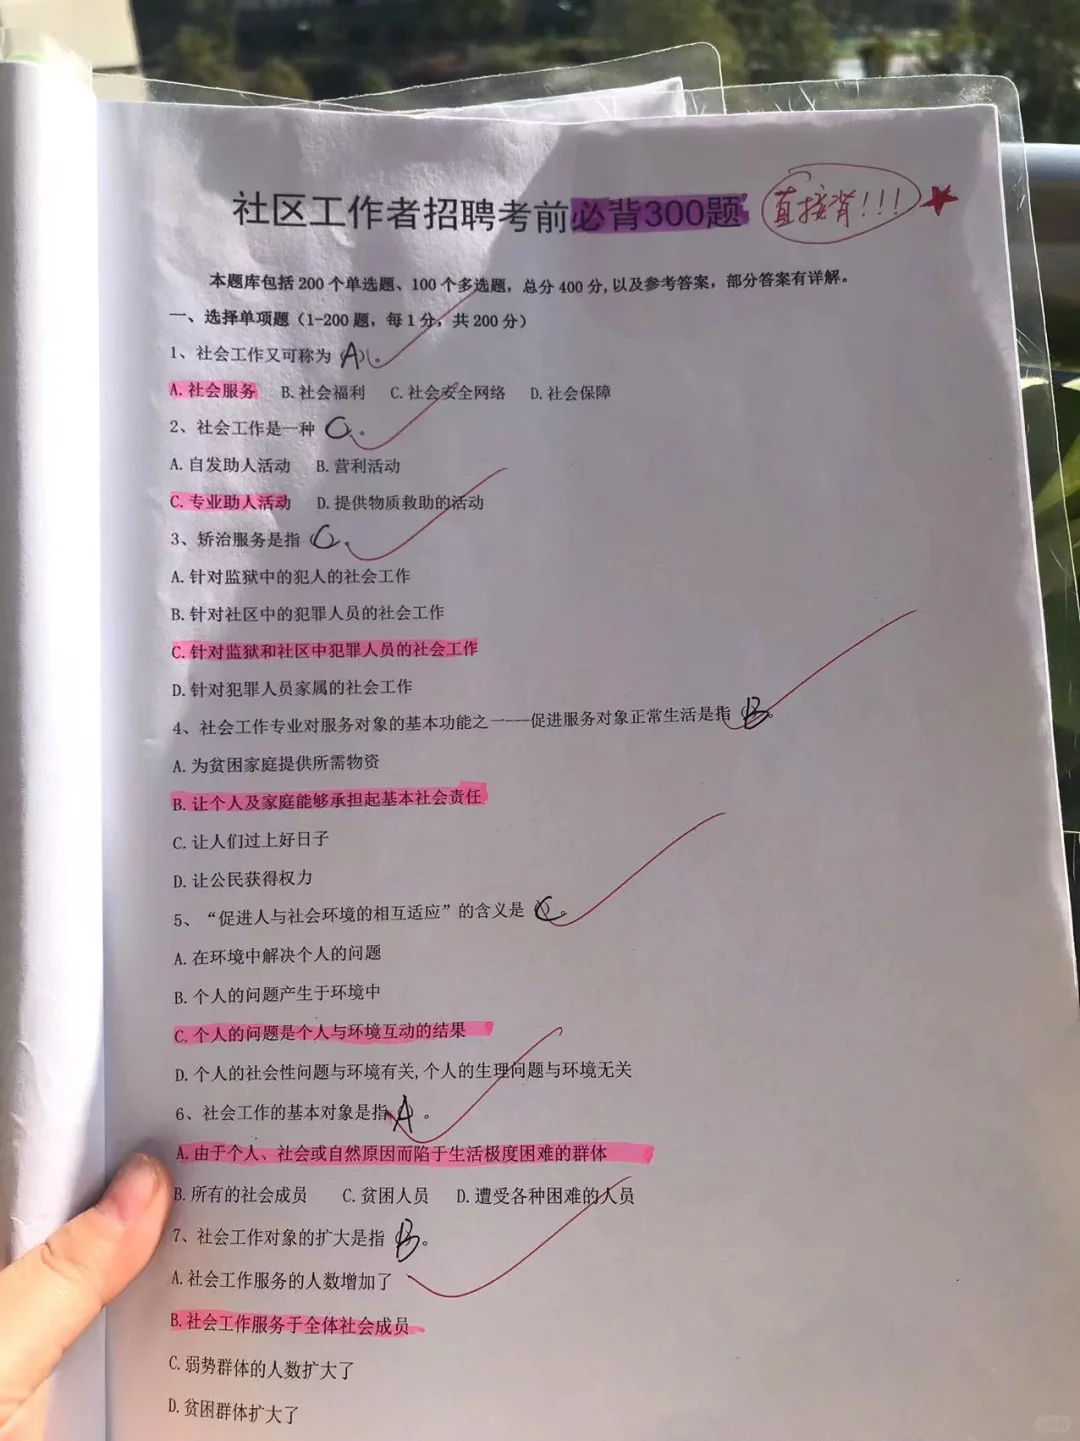 社区工作者招聘考前必背300题 直接背!!!
本题库包括200个单选题、100个多选题，总分400分,以及参考答案，部分答案有详解。
一、选择单项题（1-200题，每1分，共200分）
1、社会工作又可称为（A）。
A.社会服务 B.社会福利 C.社会安全网络 D.社会保障
2、社会工作是一种 C 。
A.自发助人活动 B.营利活动
C.专业助人活动 D.提供物质救助的活动
3、矫治服务是指 C 。
A.针对监狱中的犯人的社会工作
B.针对社区中的犯罪人员的社会工作
C.针对监狱和社区中犯罪人员的社会工作
D.针对犯罪人员家属的社会工作
4、社会工作专业对服务对象的基本功能之一----促进服务对象正常生活是指 B 。
A.为贫困家庭提供所需物资
B.让个人及家庭能够承担起基本社会责任
C.让人们过上好日子
D.让公民获得权力
5、“促进人与社会环境的相互适应”的含义是 C 。
A.在环境中解决个人的问题
B.个人的问题产生于环境中
C.个人的问题是个人与环境互动的结果
D.个人的社会性问题与环境有关,个人的生理问题与环境无关
6、社会工作的基本对象是指 A 。
A.由于个人、社会或自然原因而陷于生活极度困难的群体
B.所有的社会成员 C.贫困人员 D.遭受各种困难的人员
7、社会工作对象的扩大是指 B 。
A.社会工作服务的人数增加了
B.社会工作服务于全体社会成员
C.弱势群体的人数扩大了
D.贫困群体扩大了